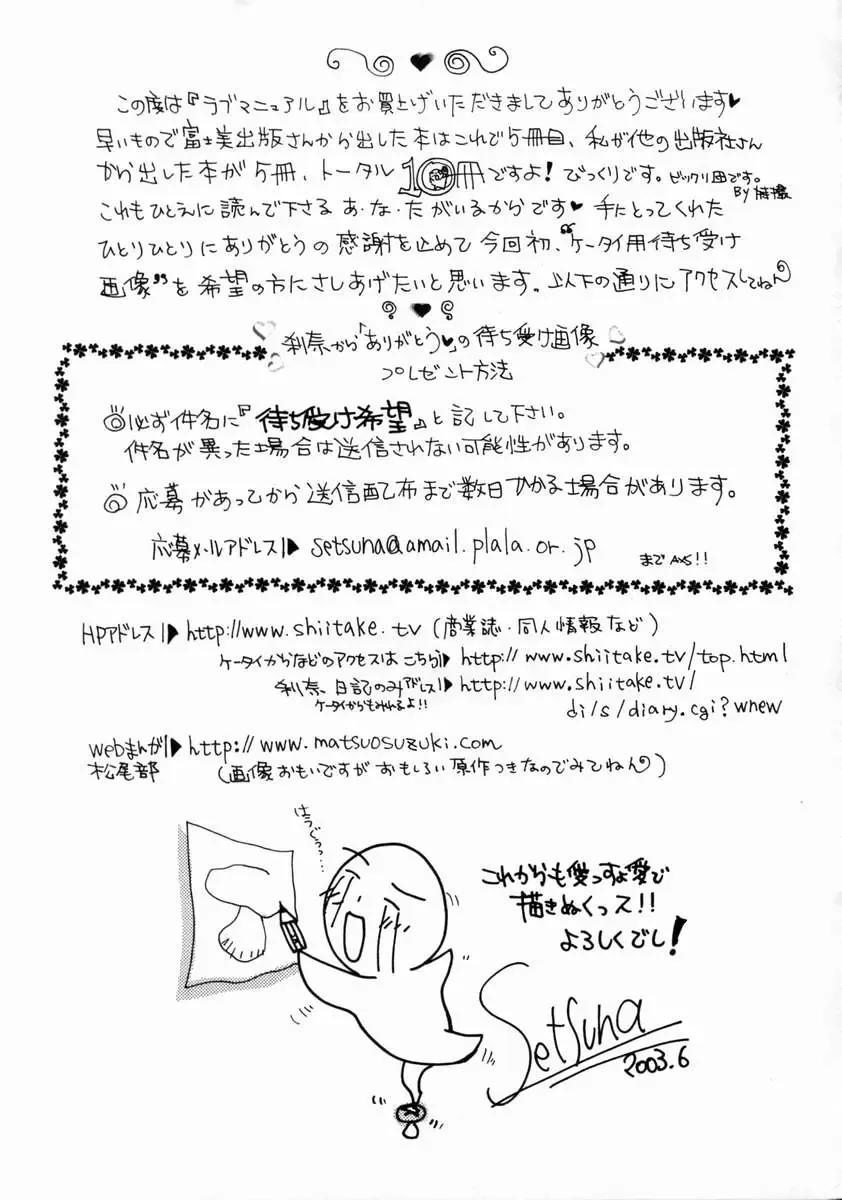 この度は『ラブマニュアル』をお買上げいただきましてありがとうございます♥
早いもので富士美出版さんから出した本はこれで5冊目、私が他の出版社さん
から出した本が5冊、トータル10冊ですよ！びっくりです。ビックリ団です。
By
これもひとえに読んで下さる あ・な・たがいるからです♥ 手にとってくれた
ひとりひとりにありがとうの感謝を止めて今回初、“ケータイ用待ち受け
画像”を希望の方にさしあげたいと思います。以下の通りにアクセスしてねん
刹奈から「ありがとう♥」の待ち受け画像
プレゼント方法
◎必ず件名に『待ち受け希望』と記して下さい。
件名が異った場合は送信されない可能性があります。
◎応募があってから送信配布まで数日かかる場合があります。
応募メールアドレス▶ setsuna@amail.plala.or.jp
まで
HPアドレス▶ http://www.shiitake.tv (商業誌・同人情報など)
ケータイからなどのアクセスはこちら▶ http://www.shiitake.tv/top.html
刹奈、日記のみアドレス▶ http://www.shiitake.tv/
ケータイからもみれるよ!!
di/s/diary.cgi?wnew
webまんが▶ http://www.matsuosuzuki.com
松尾部 (画像おもいですがおもしろい原作つきなのでみてねん)
これからも愛っすよ愛で
描きぬくっス!!
よろしくでし!
Setsuna
2003.6